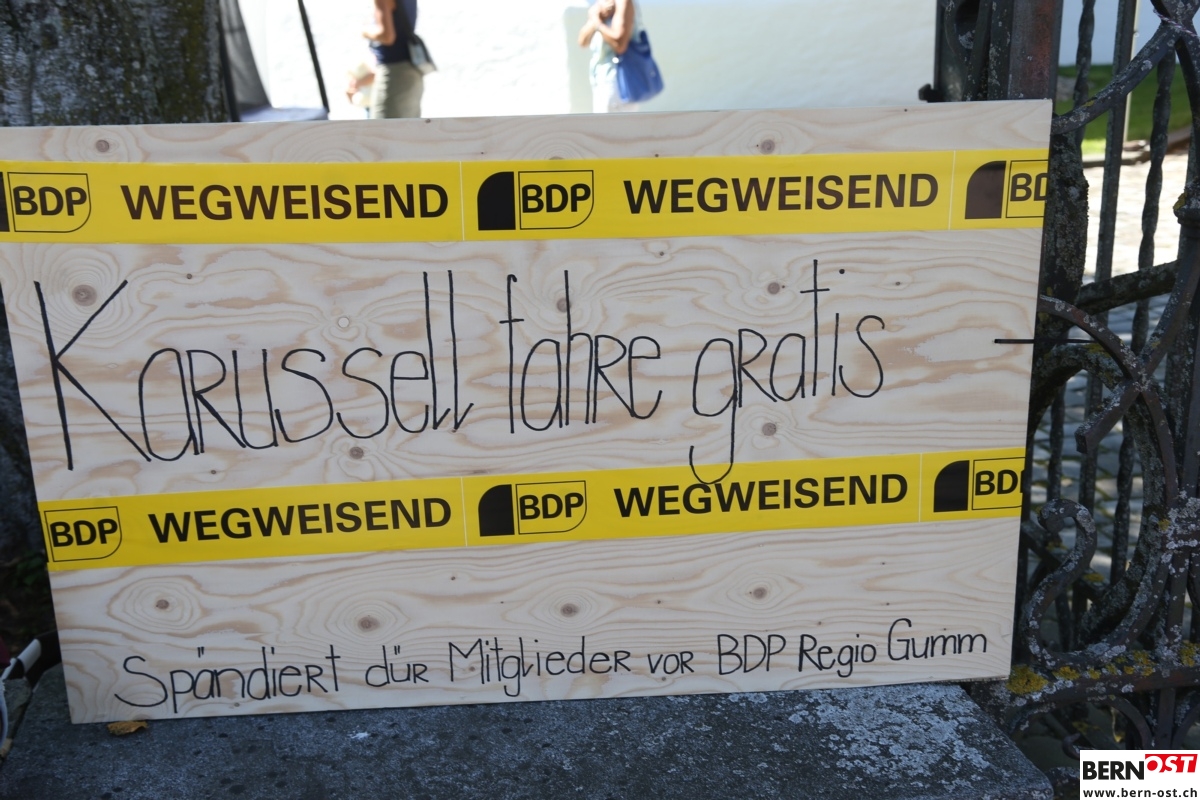 BDP WEGWEISEND BDP WEGWEISEND BD
Karussell fahre gratis
BDP WEGWEISEND BDP WEGWEISEND BD
Spändiert dür Mitglieder vor BDP Regio Gumm
BERNOST
www.bern-ost.ch